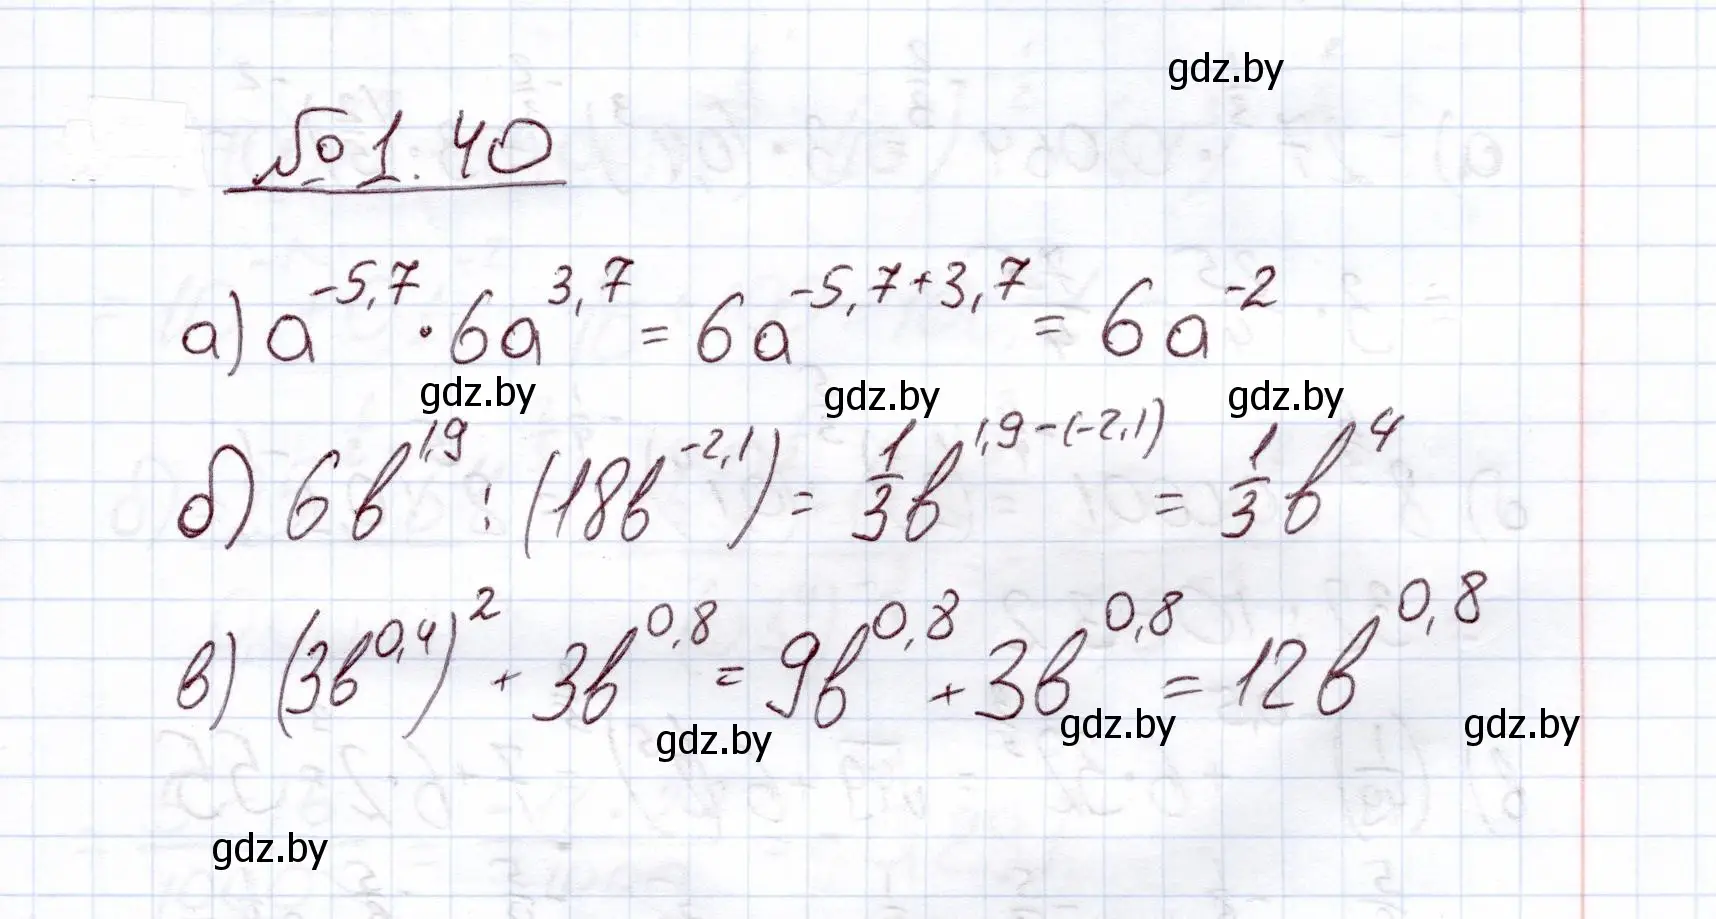 gdz.by
№ 1.40
а) a^{-5,7} · 6a^{3,7} = 6a^{-5,7+3,7} = 6a^{-2}
gdz.by gdz.by gdz.by
б) 6b^{1,9} : (18b^{-2,1}) = \frac{1}{3}b^{1,9-(-2,1)} = \frac{1}{3}b^{4}
в) (3b^{0,4})^{2} + 3b^{0,8} = 9b^{0,8} + 3b^{0,8} = 12b^{0,8}
gdz.by gdz.by gdz.by
gdz.by